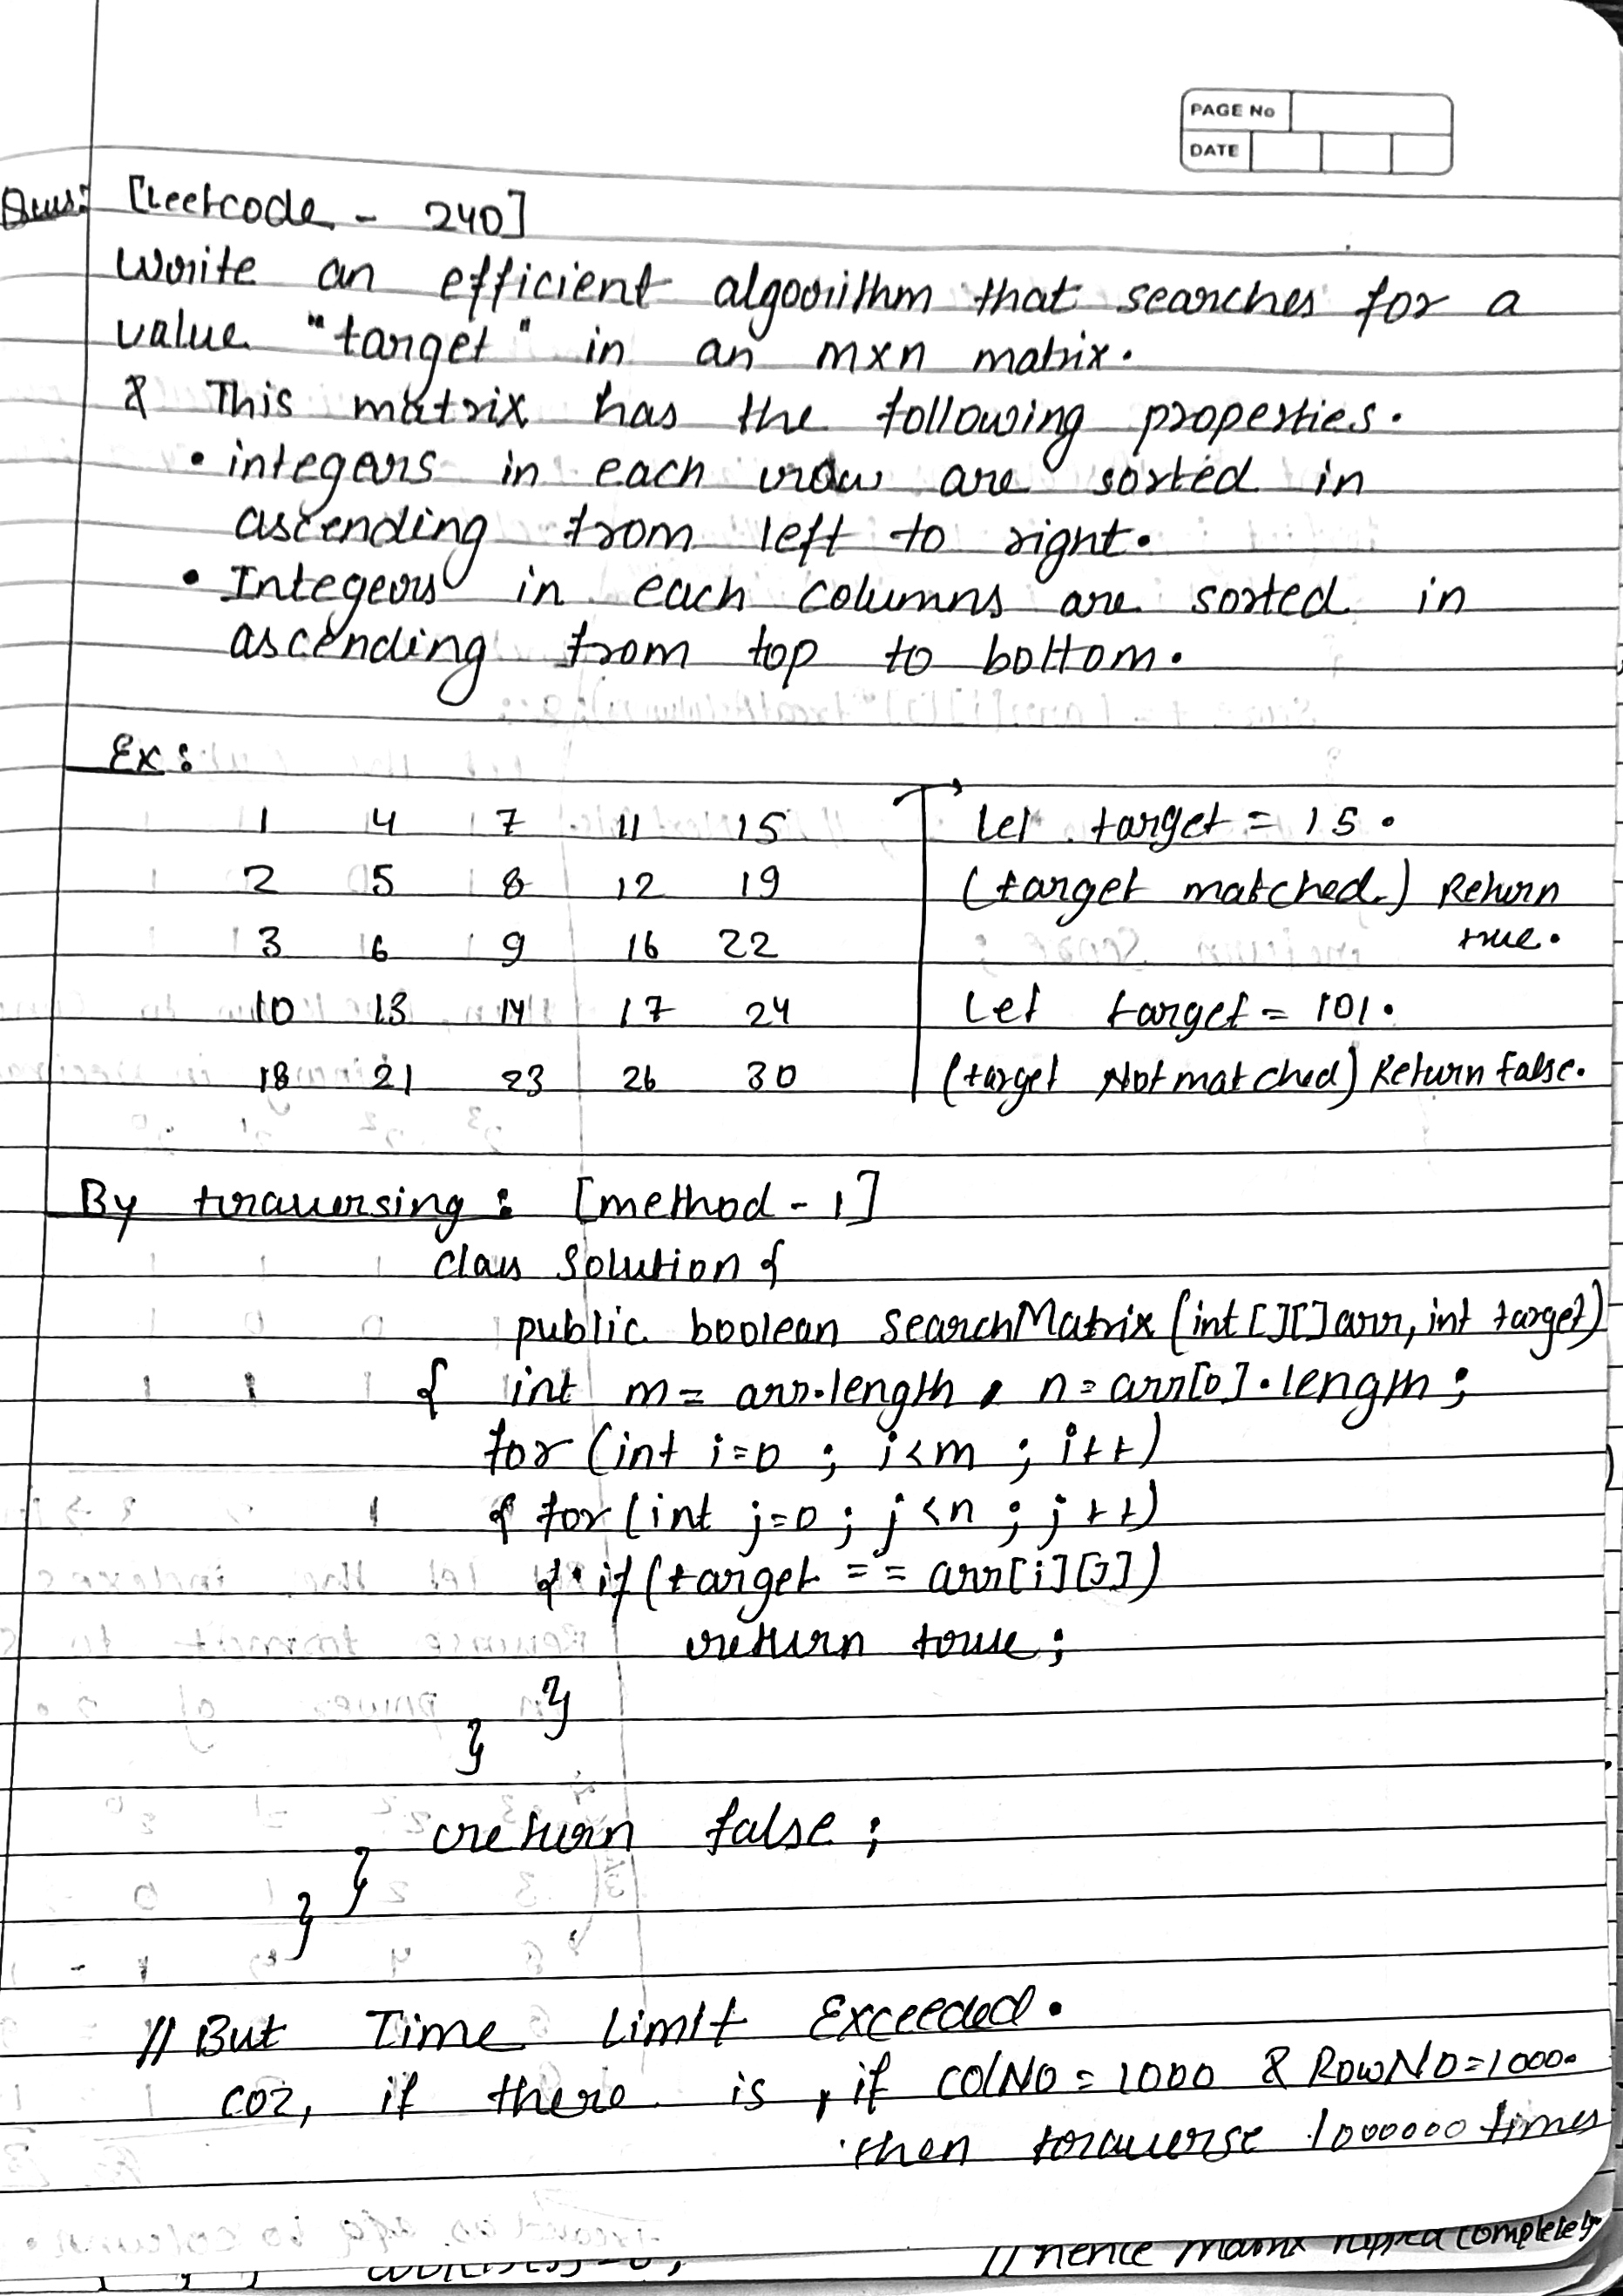 PAGE No
DATE
Ques: [Leetcode - 240]
Write an efficient algorithm that searches for a
value "target" in an mxn matrix.
& This matrix has the following properties.
• integers in each row are sorted in
ascending from left to right.
• Integers in each columns are sorted in
ascending from top to bottom.
Ex:
1 4 7 11 15 Let target = 15.
2 5 8 12 19 (target matched.) Return
3 6 9 16 22 true.
10 13 14 17 24 Let target = 101.
18 21 23 26 30 (target Not matched) Return false.
By traversing: [method - 1]
class Solution {
public boolean searchMatrix (int [][] arr, int target)
{ int m = arr.length , n = arr[0].length ;
for (int i=0 ; i<m ; i++)
{ for (int j=0 ; j<n ; j++)
{ if (target == arr[i][j])
return true ;
}
}
return false ;
}
}
// But Time Limit Exceeded.
coz, if there is , if colNo = 1000 & RowNo = 1000.
then traverse 1000000 times
// hence matrix completely